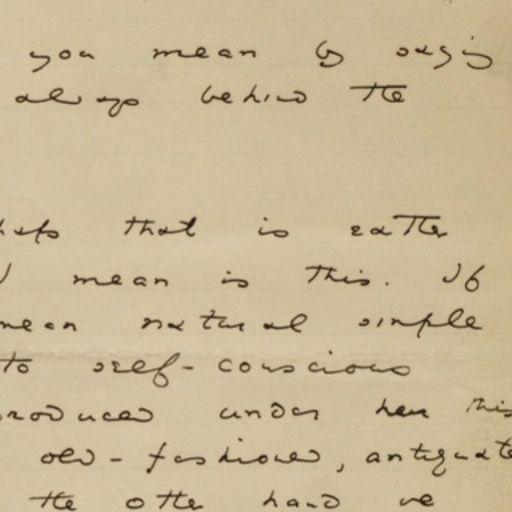 you mean by saying
always behind the
that is rather
mean is this. If
mean natural simple
to self-conscious
produced under
old-fashioned, antiquate
the other hand we